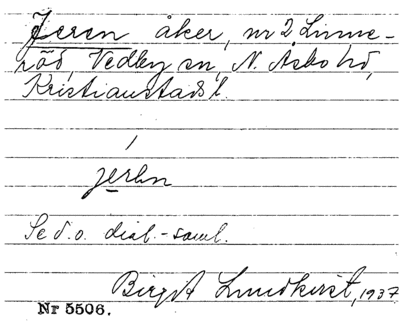 Jeren åker, nr 2 Linne-
röd, Vedby sn, N. Åsbo hd,
Kristianstads l.
jerən
Se d.o. dial.-saml.
Birgit Lundkvist, 1937
Nr 5506.